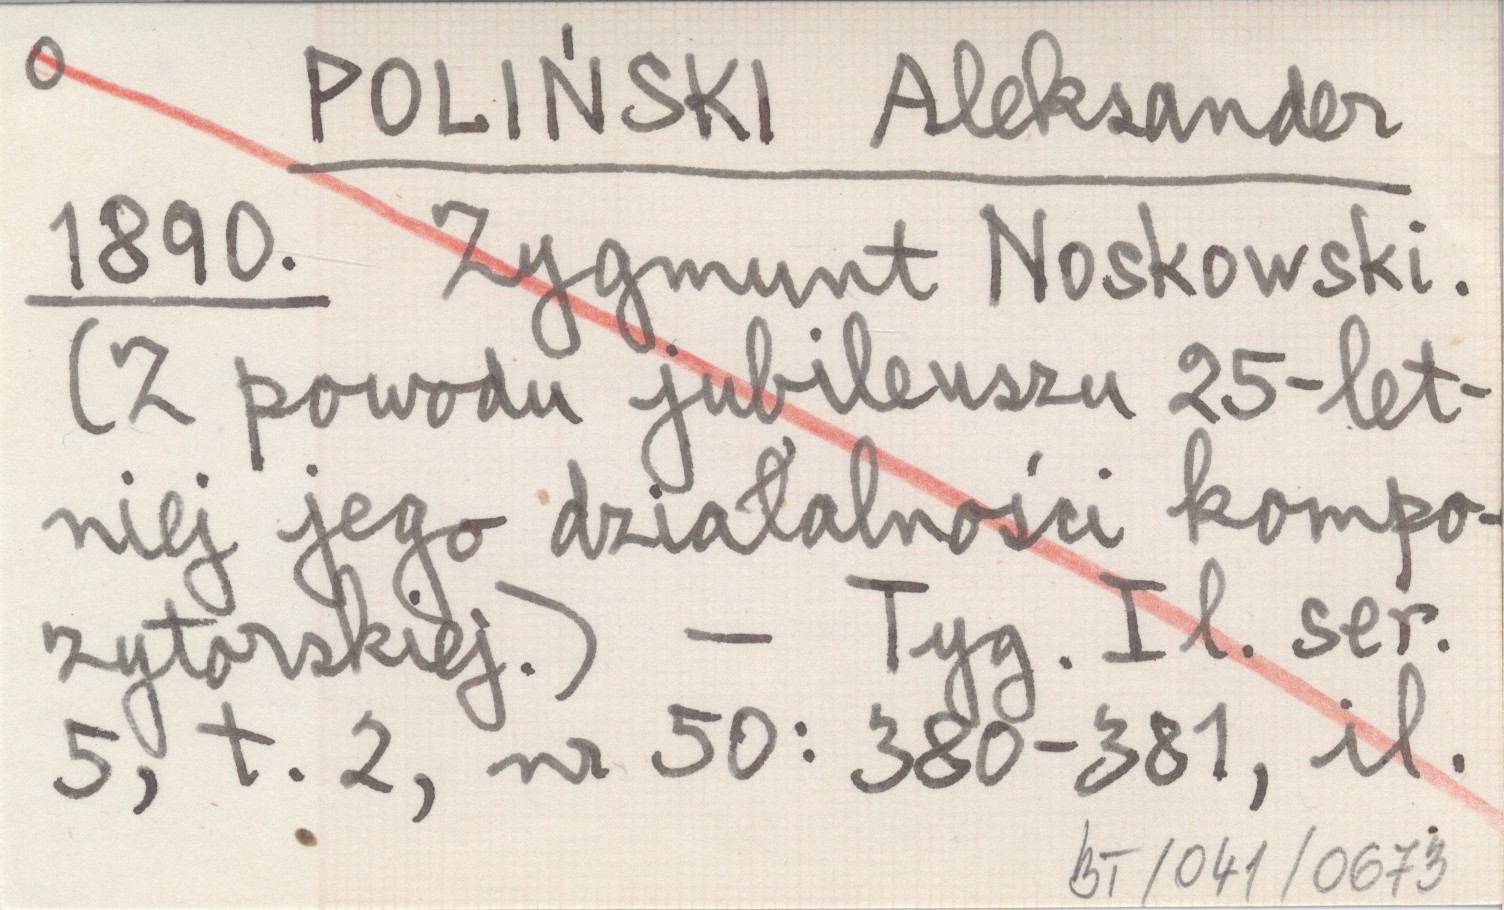 o POLIŃSKI Aleksander
1890. Zygmunt Noskowski.
(Z powodu jubileuszu 25-let-
niej jego działalności kompo-
zytorskiej.) — Tyg. Il. ser.
5, t. 2, nr 50: 380-381, il.
BT/041/0673